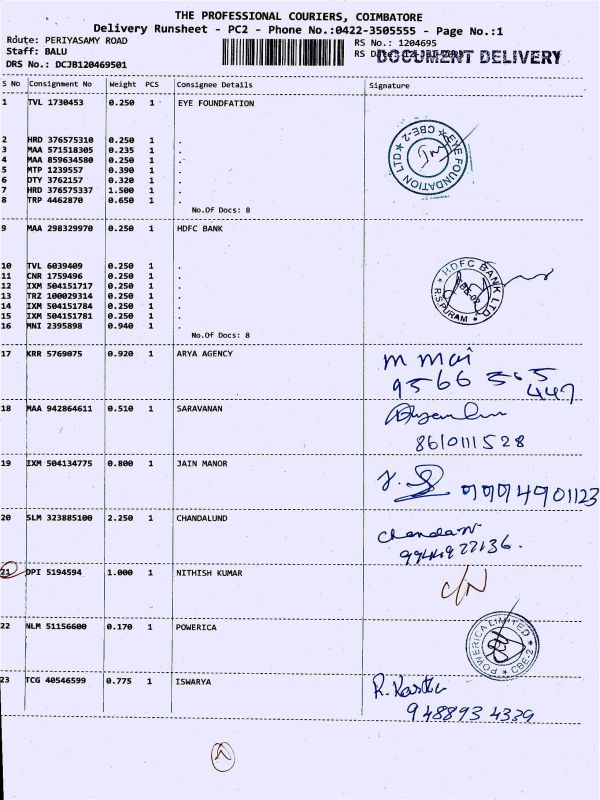 THE PROFESSIONAL COURIERS, COIMBATORE
Delivery Runsheet - PC2 - Phone No.:0422-3505555 - Page No.:1
Route: PERIYASAMY ROAD
RS No.: 1204695
Staff: BALU
RS Date:
DOCUMENT DELIVERY
DRS No.: DCJB120469501
S No Consignment No Weight PCS Consignee Details Signature
1 TVL 1730453 0.250 1 EYE FOUNDFATION
2 HRD 376575310 0.250 1 .
3 MAA 571518305 0.235 1 .
4 MAA 859634580 0.250 1 .
5 MTP 1239557 0.390 1 .
6 DTY 3762157 0.320 1 .
7 HRD 376575337 1.500 1 .
8 TRP 4462870 0.650 1 .
EYE FOUNDATION LTD ★ CBE-2 ★
No.Of Docs: 8
9 MAA 298329970 0.250 1 HDFC BANK
10 TVL 6039409 0.250 1 .
11 CNR 1759496 0.250 1 .
12 IXM 504151717 0.250 1 .
13 TRZ 100029314 0.250 1 .
14 IXM 504151784 0.250 1 .
15 IXM 504151781 0.250 1 .
16 MNI 2395898 0.940 1 .
HDFC BANK LTD ★ R.S.PURAM ★
No.Of Docs: 8
17 KRR 5769075 0.920 1 ARYA AGENCY
9566 565
447
18 MAA 942864611 0.510 1 SARAVANAN
8610111528
19 IXM 504134775 0.800 1 JAIN MANOR
20 SLM 323885100 2.250 1 CHANDALUND
21 DPI 5194594 1.000 1 NITHISH KUMAR
C/N
22 NLM 51156600 0.170 1 POWERICA
POWERICA LIMITED ★ CBE-2 ★
23 TCG 40546599 0.775 1 ISWARYA
948893 4339